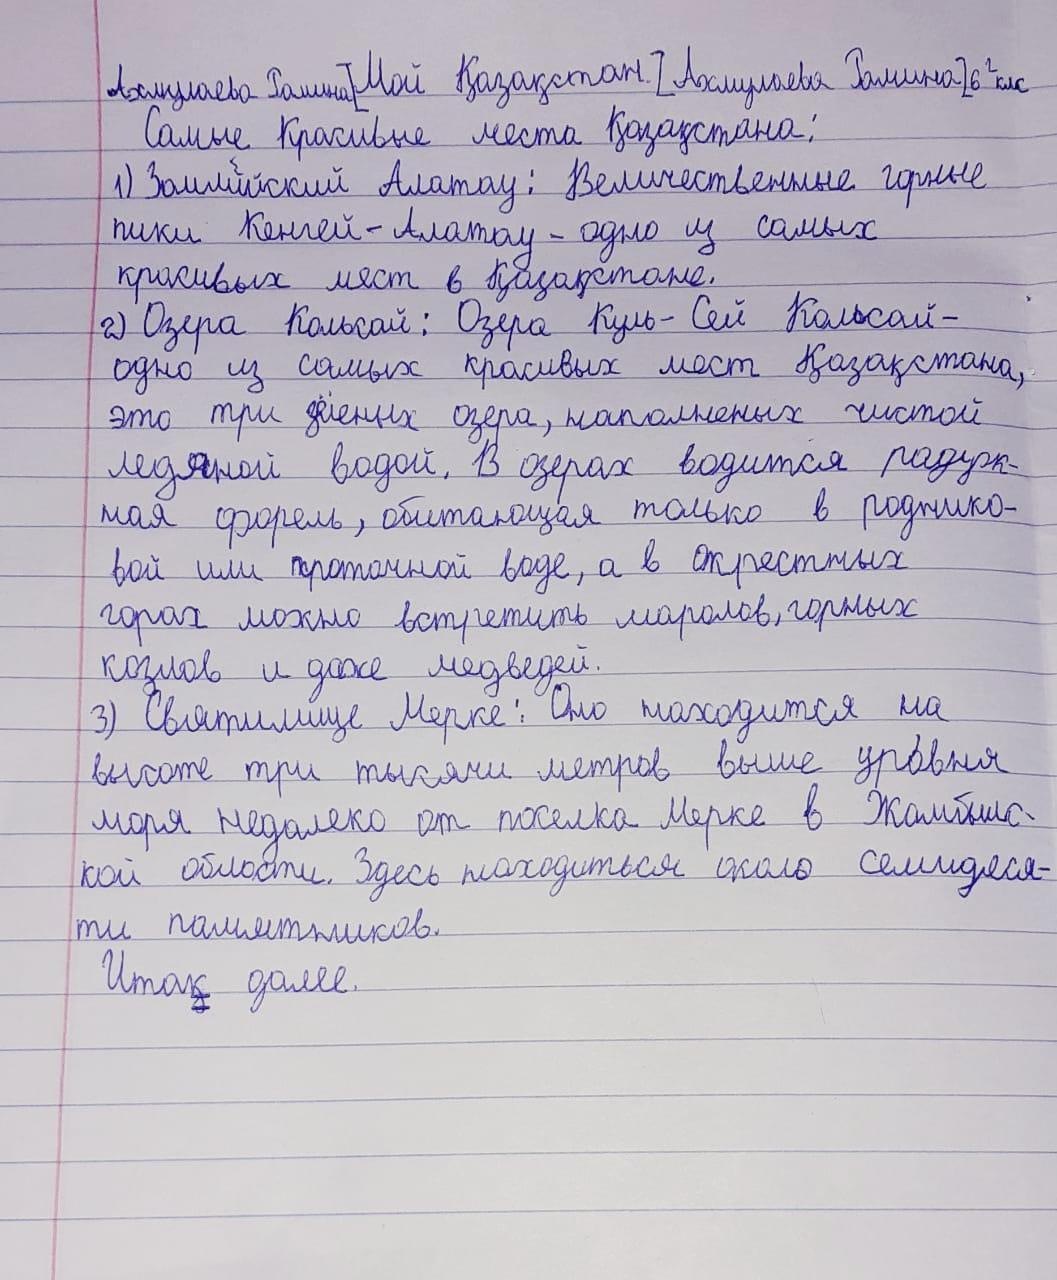 Ахмулаева Галина][Мой Қазақстан.[Ахмулаева Галина]6² клс
Самые Красивые места Қазақстана:
1) Заилийский Алатау: Величественные горные
пики Кенгей-Алатау - одно из самых
красивых мест в Қазақстане.
2) Озера Кольсай: Озера Куль-Сей Кольсай-
одно из самых красивых мест Қазақстана,
это три озера, наполненых чистой
ледяной водой. В озерах водится радуж-
ная форель, обитающая только в роднико-
вой или проточной воде, а в окрестных
горах можно встретить маралов, горных
козлов и даже медведей.
3) Святилище Мерке: Оно находится на
высоте три тысячи метров выше уровня
моря недалеко от поселка Мерке в Жамбылс-
кой области. Здесь находиться около семидеся-
ти памятников.
Итак далее.